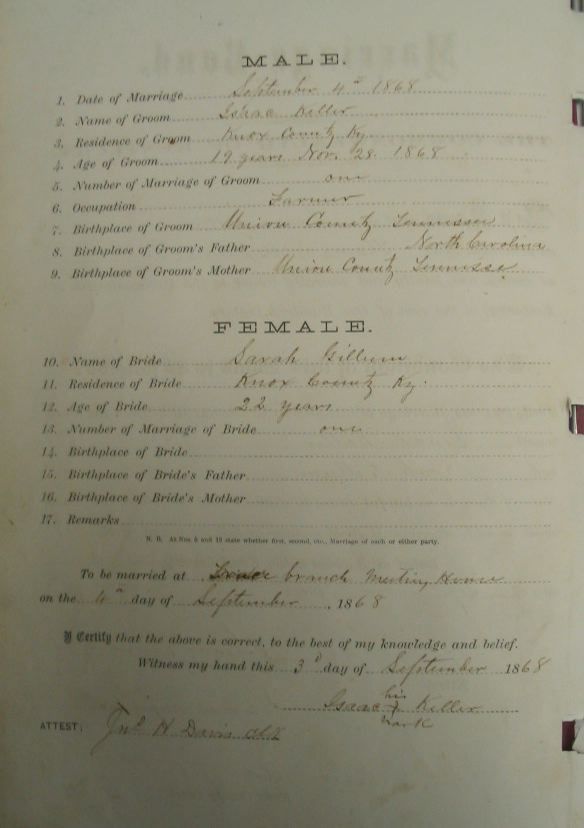 MALE.
1. Date of Marriage September 4th 1868
2. Name of Groom Isaac Keller
3. Residence of Groom Knox County Ky.
4. Age of Groom 19 years Nov. 28 1868
5. Number of Marriage of Groom one
6. Occupation Farmer
7. Birthplace of Groom Union County Tennessee
8. Birthplace of Groom's Father North Carolina
9. Birthplace of Groom's Mother Union County Tennessee
FEMALE.
10. Name of Bride Sarah Gillum
11. Residence of Bride Knox County Ky.
12. Age of Bride 22 years
13. Number of Marriage of Bride one
14. Birthplace of Bride
15. Birthplace of Bride's Father
16. Birthplace of Bride's Mother
17. Remarks
N. B. At Nos. 5 and 13 state whether first, second, etc., Marriage of each or either party.
To be married at branch Meeting House
on the 4th day of September, 1868
I Certify that the above is correct, to the best of my knowledge and belief.
Witness my hand this 3d day of September 1868
his
Isaac Keller
mark
ATTEST; Jno H Davis